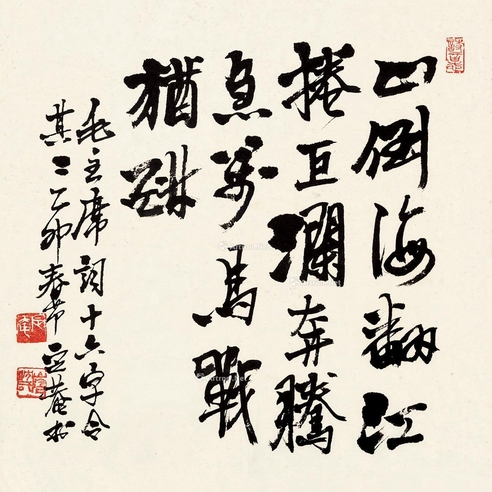 山倒海翻江
捲巨瀾奔騰
急萬馬戰
猶酣
毛主席詞十六字令
其二乙卯春節